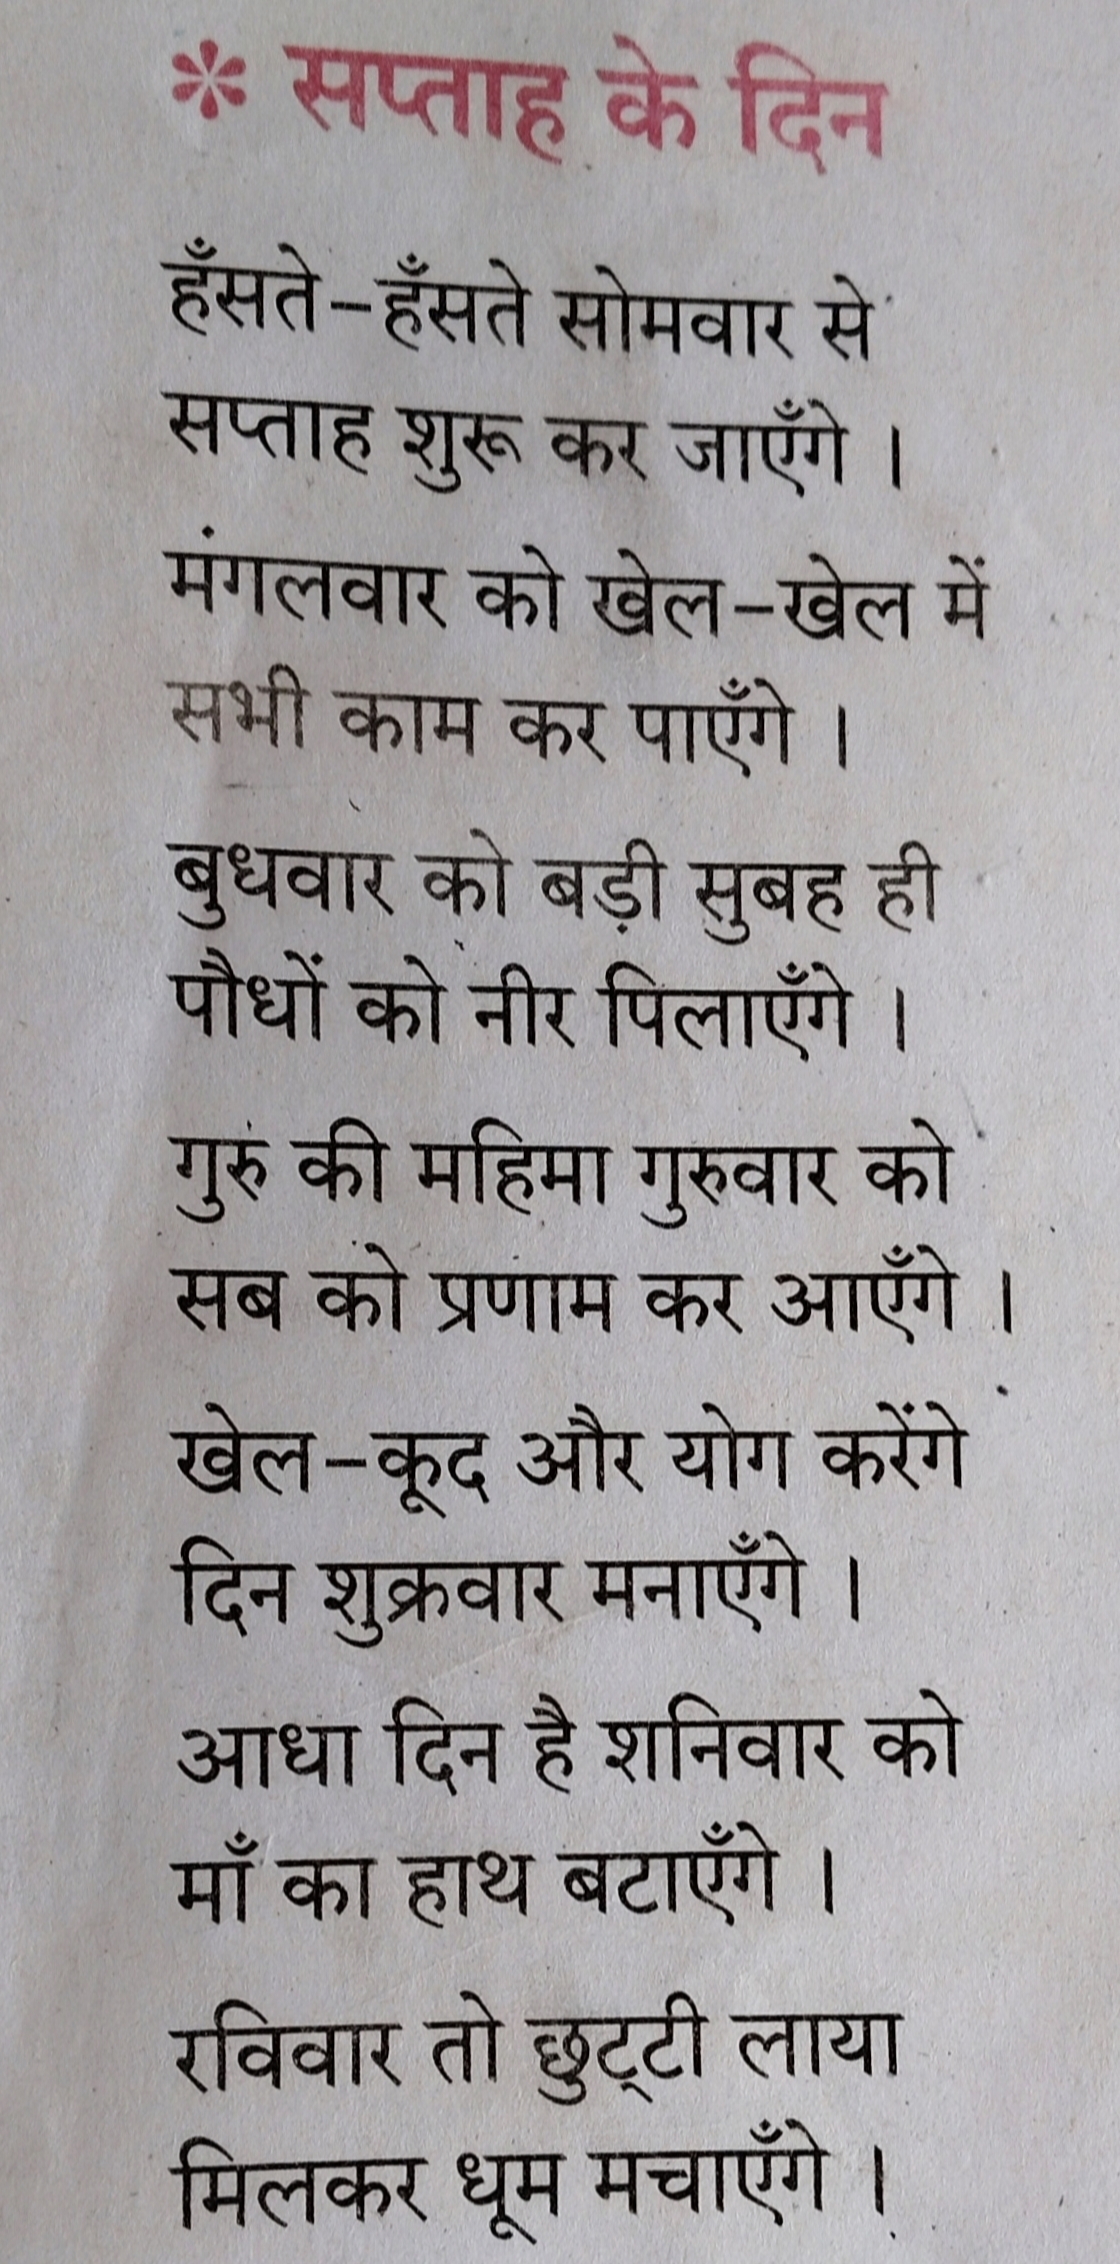 * सप्ताह के दिन
हँसते-हँसते सोमवार से
सप्ताह शुरू कर जाएँगे ।
मंगलवार को खेल-खेल में
सभी काम कर पाएँगे ।
बुधवार को बड़ी सुबह ही
पौधों को नीर पिलाएँगे ।
गुरु की महिमा गुरुवार को
सब को प्रणाम कर आएँगे ।
खेल-कूद और योग करेंगे
दिन शुक्रवार मनाएँगे ।
आधा दिन है शनिवार को
माँ का हाथ बटाएँगे ।
रविवार तो छुट्‌टी लाया
मिलकर धूम मचाएँगे ।